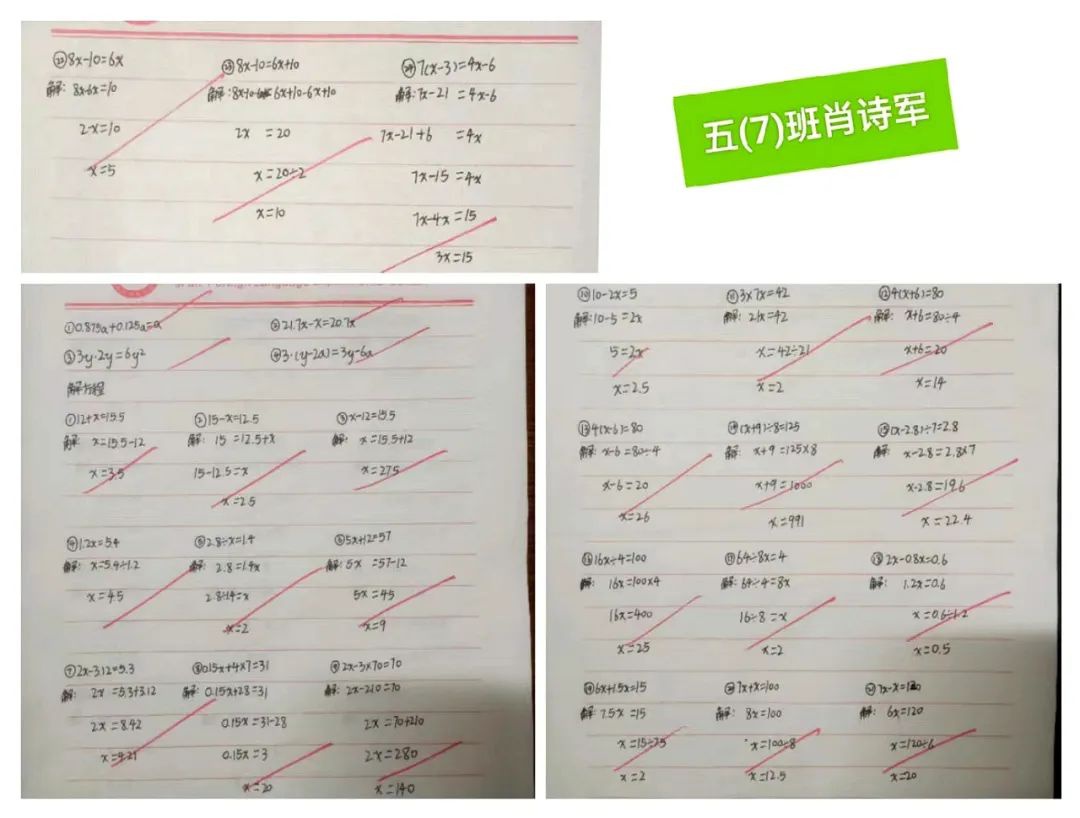 ㉒8x-10=6x ㉓8x-10=6x+10 ㉔7(x-3)=4x-6
解:8x-6x=10 解:8x-10-6x=6x+10-6x+10 解:7x-21=4x-6
2x=10 2x=20 7x-21+6=4x
x=5 x=20÷2 7x-15=4x
x=10 7x-4x=15
3x=15
五(7)班肖诗军
①0.875a+0.125a=a ②21.7x-x=20.7x
③3y·2y=6y² ④3·(y-2a)=3y-6a
解方程
①12+x=15.5 ②15-x=12.5 ③x-12=15.5
解:x=15.5-12 解:15=12.5+x 解:x=15.5+12
x=3.5 15-12.5=x x=27.5
x=2.5
④1.2x=5.4 ⑤2.8÷x=1.4 ⑥5x+12=57
解:x=5.4÷1.2 解:2.8=1.4x 解:5x=57-12
x=4.5 2.8÷1.4=x 5x=45
x=2 x=9
⑦2x-3.12=5.3 ⑧0.15x+4×7=31 ⑨2x-3×70=70
解:2x=5.3+3.12 解:0.15x+28=31 解:2x-210=70
2x=8.42 0.15x=31-28 2x=70+210
x=4.21 0.15x=3 2x=280
x=20 x=140
⑩10-2x=5 ⑪3×7x=42 ⑫4(x+6)=80
解:10-5=2x 解:21x=42 解:x+6=80÷4
5=2x x=42÷21 x+6=20
x=2.5 x=2 x=14
⑬4(x-6)=80 ⑭(x+9)÷8=125 ⑮(x-2.8)÷7=2.8
解:x-6=80÷4 解:x+9=125×8 解:x-2.8=2.8×7
x-6=20 x+9=1000 x-2.8=19.6
x=26 x=991 x=22.4
⑯16x÷4=100 ⑰64÷8x=4 ⑱2x-0.8x=0.6
解:16x=100×4 解:64÷4=8x 解:1.2x=0.6
16x=400 16÷8=x x=0.6÷1.2
x=25 x=2 x=0.5
⑲6x+1.5x=15 ⑳7x+x=100 ㉑7x-x=120
解:7.5x=15 解:8x=100 解:6x=120
x=15÷7.5 x=100÷8 x=120÷6
x=2 x=12.5 x=20